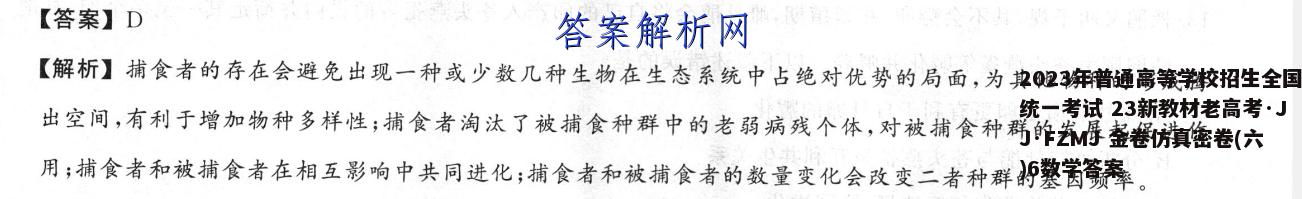 【答案】D
答案解析网
【解析】捕食者的存在会避免出现一种或少数几种生物在生态系统中占绝对优势的局面,为其
出空间,有利于增加物种多样性;捕食者淘汰了被捕食种群中的老弱病残个体,对被捕食种群的发展起促进作
用;捕食者和被捕食者在相互影响中共同进化;捕食者和被捕食者的数量变化会改变二者种群的基因频率。
2023年普通高等学校招生全国
统一考试 23新教材老高考·J
J·FZMJ 金卷仿真密卷(六
)6数学答案